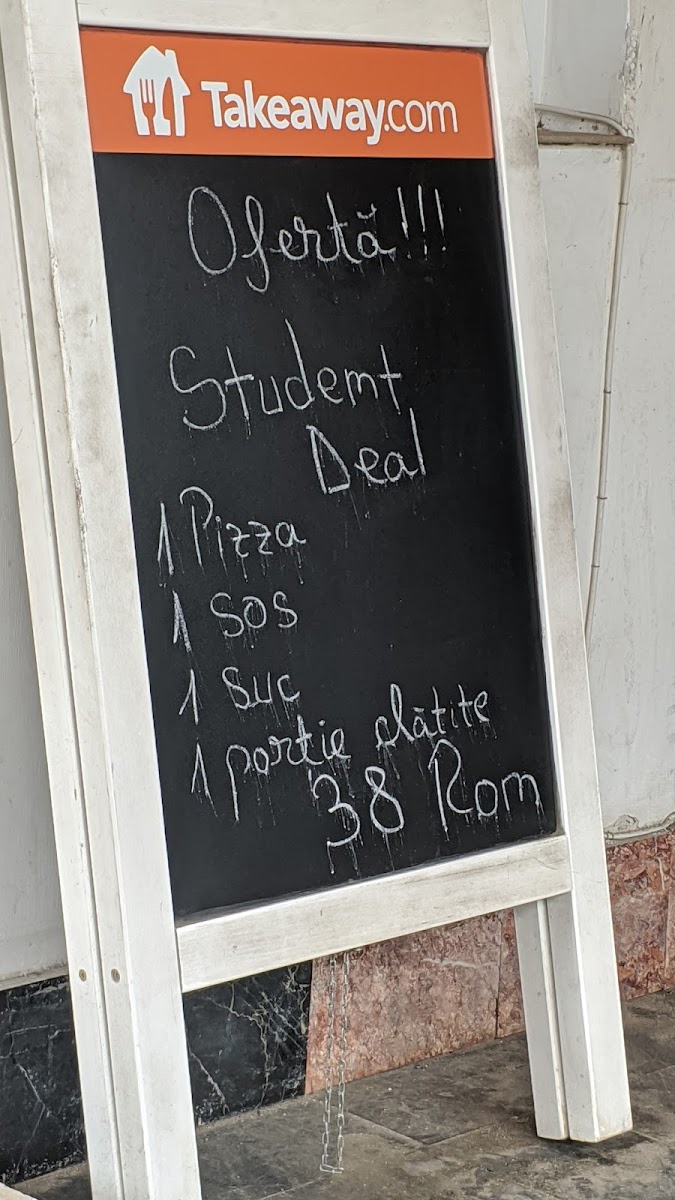 Takeaway.com
Ofertă!!!
Student
Deal
1 Pizza
1 sos
1 suc
1 porție clătite
38 Ron